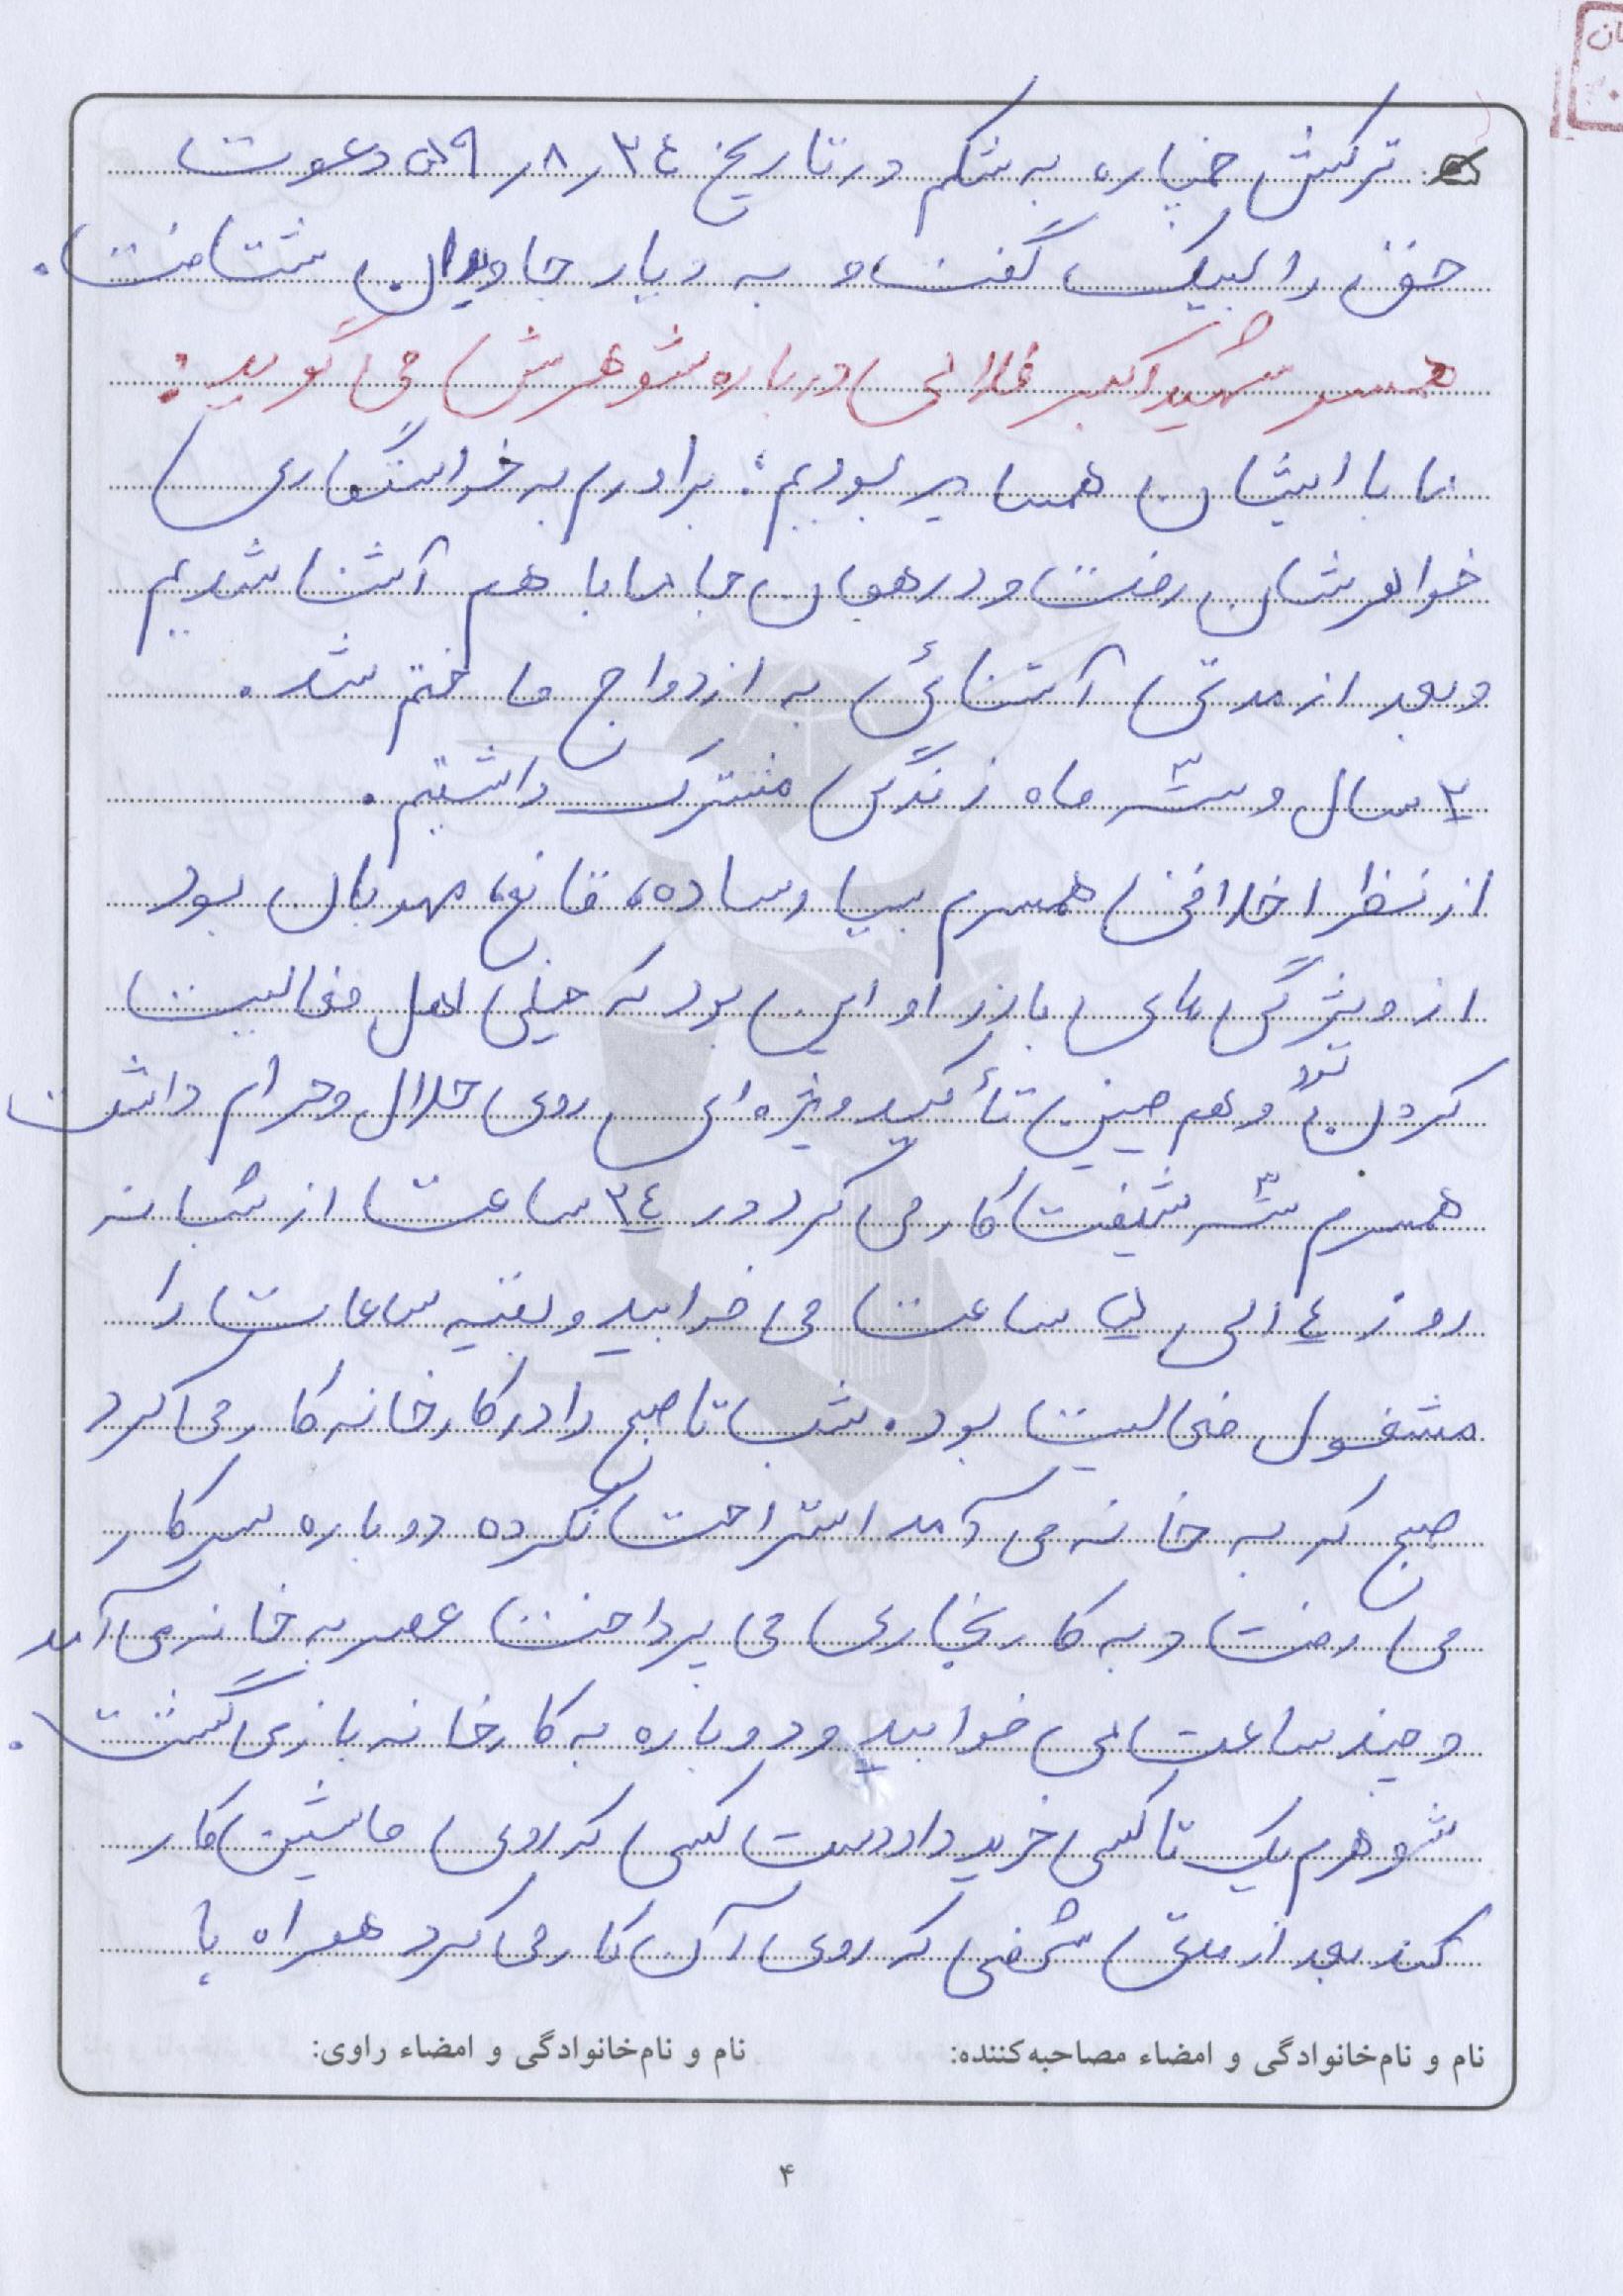 ترکش خمپاره به شکم در تاریخ ٢٤ر٨ر٥٩ دعوت
حق را لبیک گفت و به دیار جاویدان شتافت.
همسر شهید اکبر درباره شوهرش می گوید:
ما با ایشان همسایه بودیم؛ برادرم به خواستگاری
خواهرشان رفت و در همان جا ما با هم آشنا شدیم
و بعد از مدتی آشنائی به ازدواج ما ختم شد.
٢ سال و شش ماه زندگی مشترک داشتیم.
از نظر اخلاقی همسرم بسیار ساده، قانع، مهربان بود
از ویژگی های بارز او این بود که خیلی اهل فعالیت
کردن بود و هم چنین تأکید ویژه ای روی حلال و حرام داشت
همسرم شیفت کار می کرد در ٢٤ ساعت از شبانه
روز ٤ الی ٥ ساعت می خوابید و بقیه ساعات را
مشغول فعالیت بود. شب تا صبح را در کارخانه کار می کرد
صبح که به خانه می آمد استراحت نکرده دوباره سر کار
می رفت و به کار نجاری می پرداخت عصر به خانه می آمد
و چند ساعت می خوابید و دوباره به کارخانه باز می گشت.
شوهرم یک تاکسی خرید داد دست کسی که روی ماشین کار
کند بعد از مدتی شخصی که روی آن کار می کرد همراه با
نام و نام‌خانوادگی و امضاء مصاحبه‌کننده: نام و نام‌خانوادگی و امضاء راوی:
۴